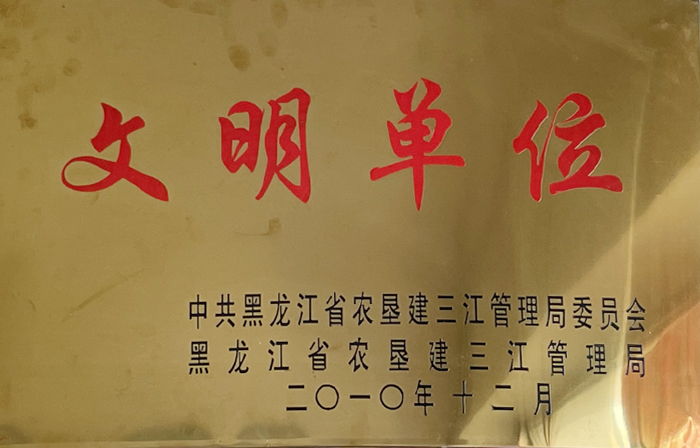 文明单位
中共黑龙江省农垦建三江管理局委员会
黑龙江省农垦建三江管理局
二〇一〇年十二月